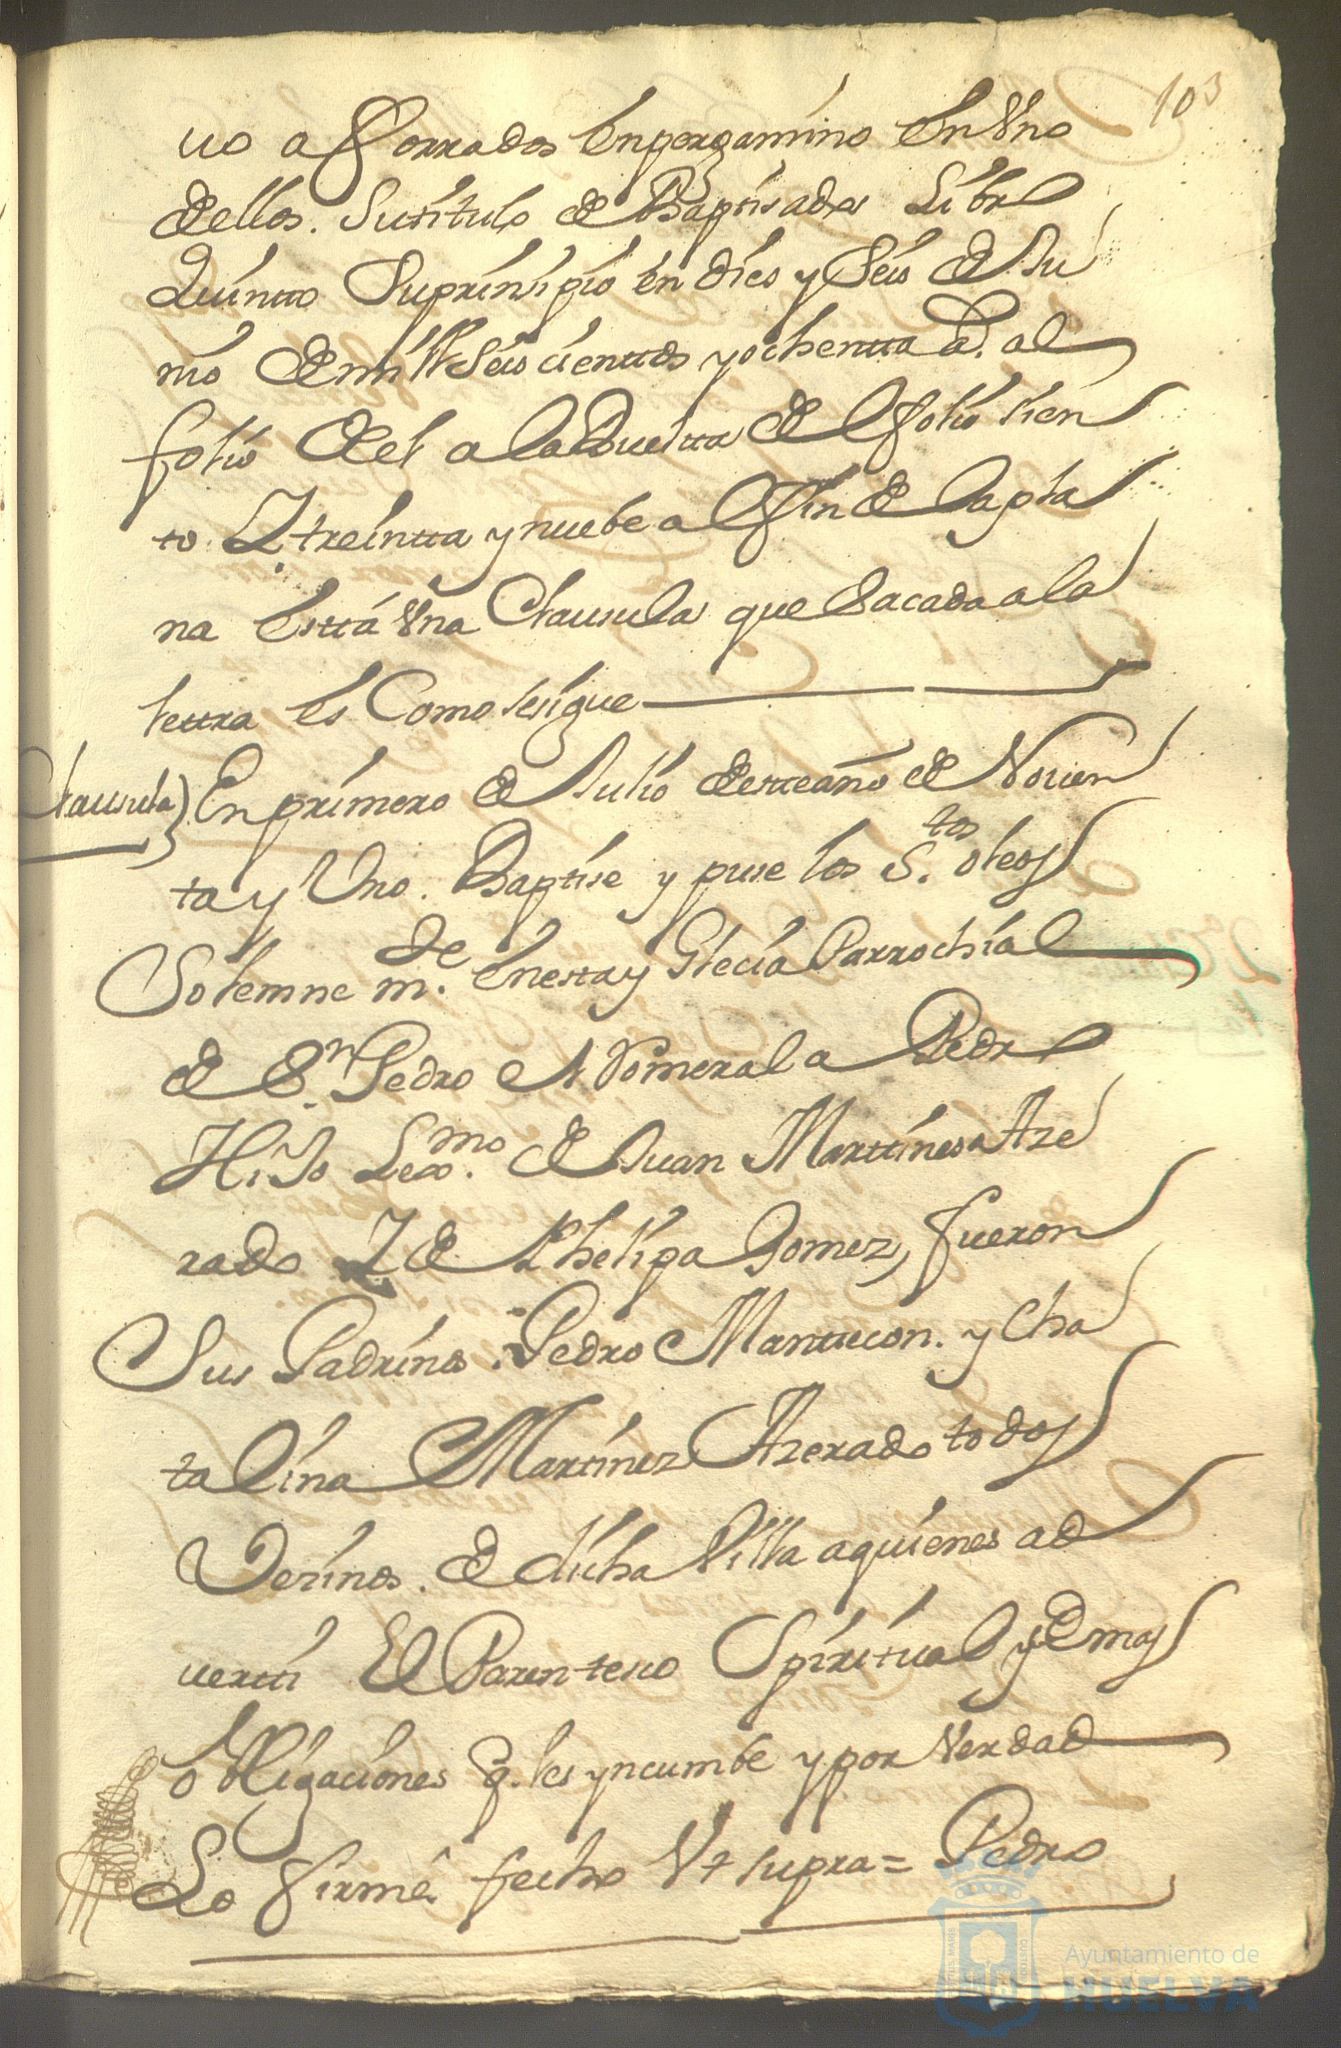 103
uo aforrados En pergamino En Vno
dellos. Su titulo de Baptisados Libro
Quinto Su prinsipio en dies y seis de Ju
nio de mill seiscienttos y ochentta a.s al
folio del a la Vuelta del folio sien
to Y treintta y nuebe al fin de la pla
na Esttá Vna Clausula que sacada a la
lettra Es Como se sigue
Clausula) En primero de Julio deste año de Noven
ta y Uno. Baptise y puse los S.tos oleos
Solemne m.de En esta yglecia Parrochial
de S.n Pedro A Pedro
Hijo Lex.mo de Juan Marttines Aze
rado Y de Phelipa Gomez, fueron
Sus Padrinos Pedro y Cha
talina Martinez Azerado todos
Vezinos. de dicha Villa a quienes ad
uertti El Parentesco Spiritual y demas
obligaciones q. les yncumbe y por Verdad
Lo firmê fecho Vt supra = Pedro
Ayuntamiento de
HUELVA